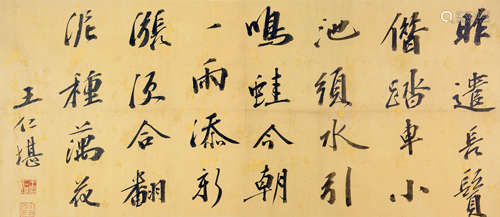 昨遣長鬚
借踏車小
池須水引
鳴蛙今朝
一雨添新
漲須合翻
泥種藕花
王仁堪